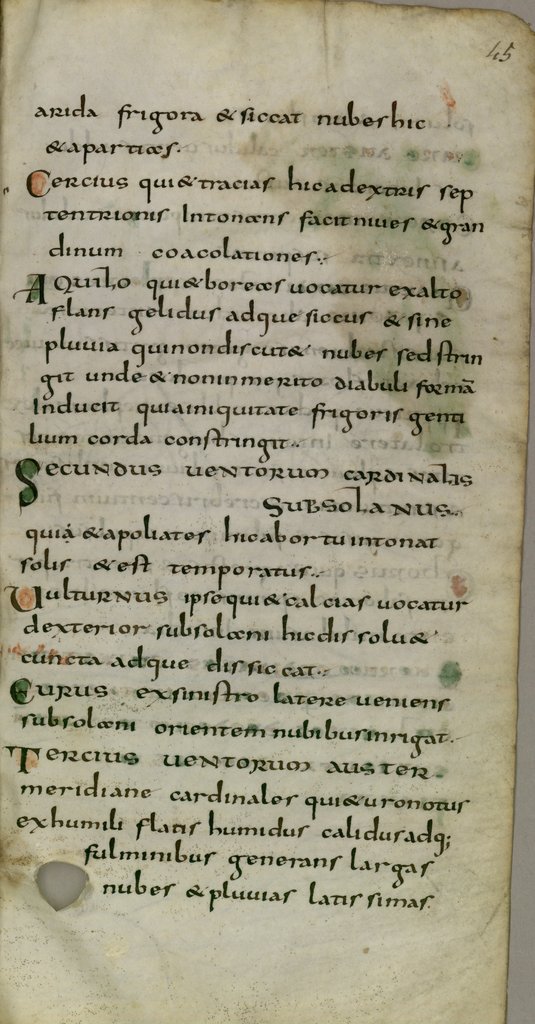 45
arida frigora & siccat nubes hic
& aparticœs.
Cercius qui & tracias hic a dextris sep
tentrionis Intonœns facit nives & gran
dinum coacolationes.
AQuiLo qui & boreœs uocatur ex alto
flans gelidus adque siccus & sine
pluuia qui non discut& nubes sed strin
git unde & non inmerito diabuli formā
Inducit quia iniquitate frigoris genti
lium corda constringit.
Secundus uentorum cardinaLis
SubSoLaNuS.
qui & apoliates hic ab ortu intonat
solis & est temporatus.
Uulturnus ipse qui & calcias uocatur
dexterior subsolœni hic dissolu&
cuncta adque dissiccat.
Eurus ex sinistro latere ueniens
subsolœni orientem nubibus inrigat.
Tercius uentorum auster
meridiane cardinales qui & uronotus
ex humili flatis humidus calidus adq;
fulminibus generans largas
nubes & pluuias latissimas.